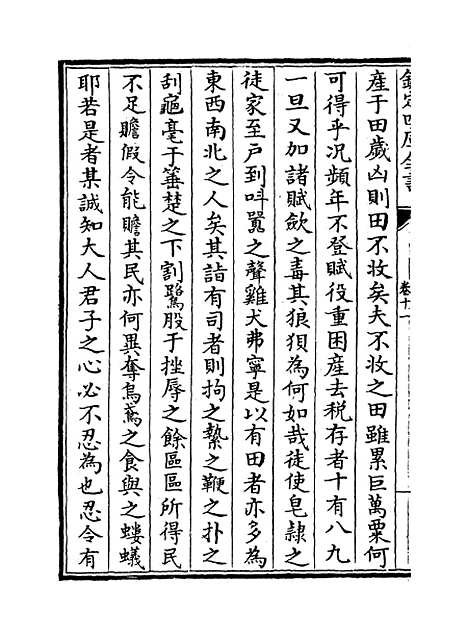 欽定四庫全書
卷十一
產于田歲凶則田不收矣夫不收之田雖累巨萬粟何
可得乎況頻年不登賦役重困產去稅存者十有八九
一旦又加諸賦斂之毒其狼狽為何如哉徒使皂隸之
徒家至戶到叫囂之聲雞犬弗寧是以有田者亦多為
東西南北之人矣其詣有司者則拘之縶之鞭之扑之
刮龜毫于箠楚之下割鷺股于挫辱之餘區區所得民
不足贍假令能贍其民亦何異奪烏鳶之食與之螻蟻
耶若是者某誠知大人君子之心必不忍為也忍令有